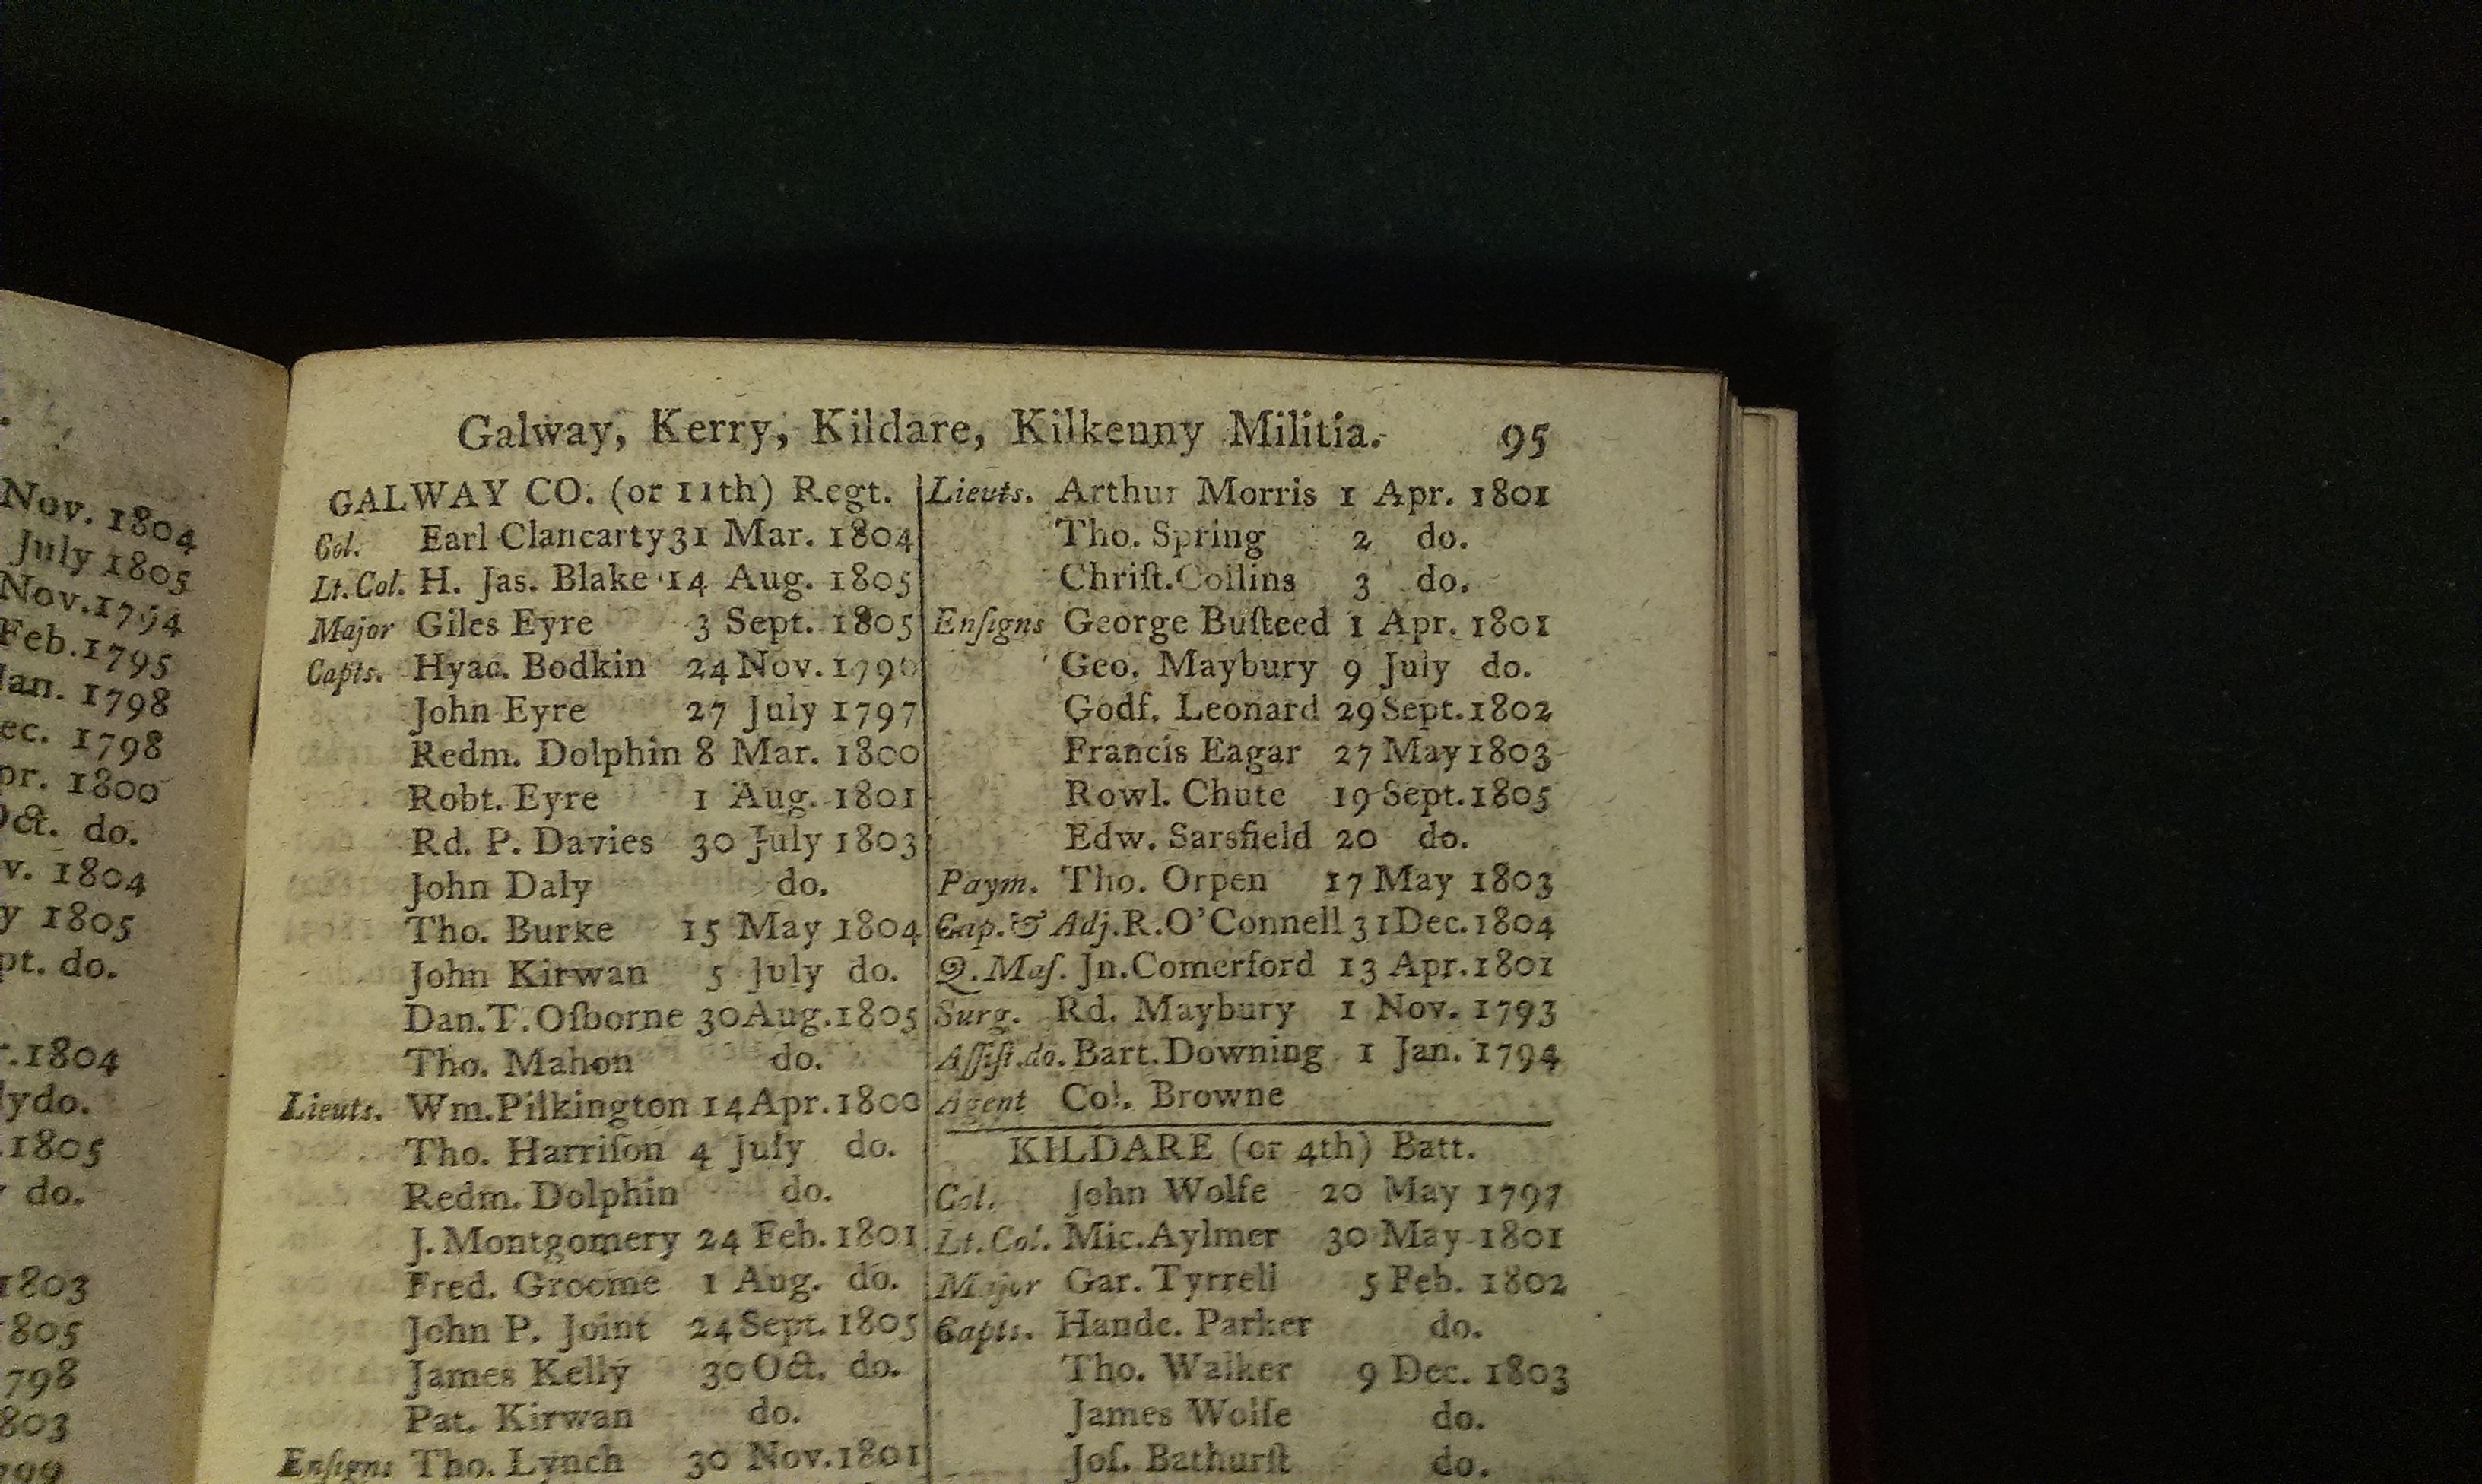 Nov. 1804
July 1805
Nov. 1794
Feb. 1795
Jan. 1798
ec. 1798
pr. 1800
Oct. do.
v. 1804
y 1805
pt. do.
r. 1804
ly do.
. 1805
do.
1803
1805
1798
803
799
Galway, Kerry, Kildare, Kilkenny Militia. 95
GALWAY CO. (or 11th) Regt.
Col. Earl Clancarty 31 Mar. 1804
Lt. Col. H. Jas. Blake 14 Aug. 1805
Major Giles Eyre 3 Sept. 1805
Capts. Hyac. Bodkin 24 Nov. 1796
John Eyre 27 July 1797
Redm. Dolphin 8 Mar. 1800
Robt. Eyre 1 Aug. 1801
Rd. P. Davies 30 July 1803
John Daly do.
Tho. Burke 15 May 1804
John Kirwan 5 July do.
Dan. T. Oſborne 30 Aug. 1805
Tho. Mahon do.
Lieuts. Wm. Pilkington 14 Apr. 1800
Tho. Harriſon 4 July do.
Redm. Dolphin do.
J. Montgomery 24 Feb. 1801
Fred. Groome 1 Aug. do.
John P. Joint 24 Sept. 1805
James Kelly 30 Oct. do.
Pat. Kirwan do.
Enſigns Tho. Lynch 30 Nov. 1801
Lieuts. Arthur Morris 1 Apr. 1801
Tho. Spring 2 do.
Chriſt. Collins 3 do.
Enſigns George Buſteed 1 Apr. 1801
Geo. Maybury 9 July do.
Godf. Leonard 29 Sept. 1802
Francis Eagar 27 May 1803
Rowl. Chute 19 Sept. 1805
Edw. Sarsfield 20 do.
Paym. Tho. Orpen 17 May 1803
Cap. & Adj. R. O'Connell 31 Dec. 1804
Q. Maſ. Jn. Comerford 13 Apr. 1801
Surg. Rd. Maybury 1 Nov. 1793
Aſſiſt. do. Bart. Downing 1 Jan. 1794
Agent Col. Browne
KILDARE (or 4th) Batt.
Col. John Wolfe 20 May 1797
Lt. Col. Mic. Aylmer 30 May 1801
Major Gar. Tyrrell 5 Feb. 1802
Capts. Hande. Parker do.
Tho. Walker 9 Dec. 1803
James Wolfe do.
Joſ. Bathurſt do.